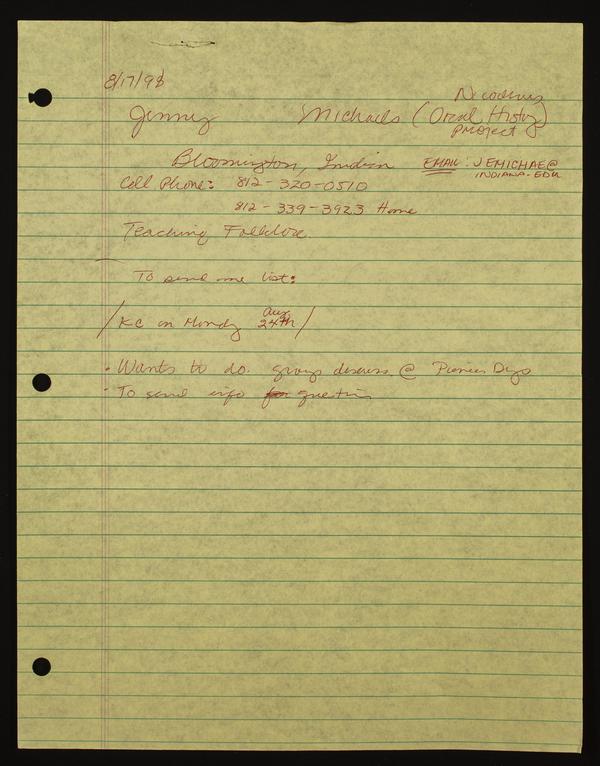 8/17/98
Nicodemus
Jenny Michaels (Oral History)
Project
Bloomington, Indian EMAIL: JEMICHAE@
INDIANA.EDU
Cell Phone: 812-320-0510
812-339-3923 Home
Teaching Folklore
To send me list:
Aug
/ KC on Monday 24th /
• Wants to do group discuss @ Pioneer Days
• To send info for question